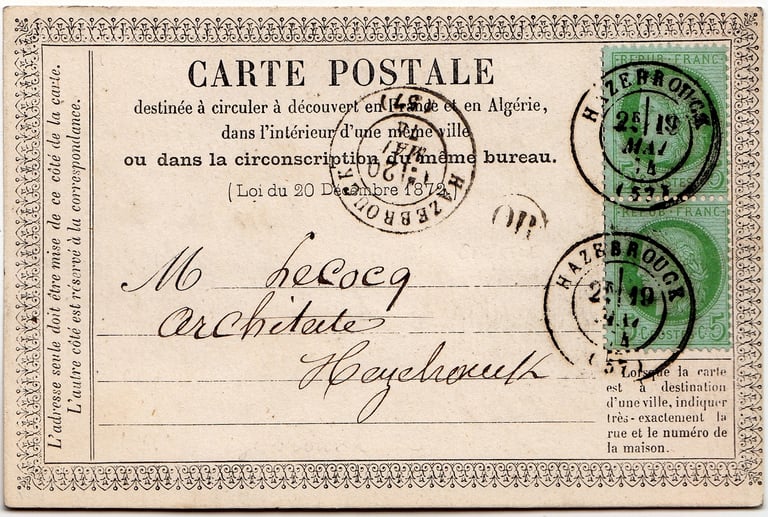 CARTE POSTALE
destinée à circuler à découvert en France et en Algérie,
dans l'intérieur d'une même ville
ou dans la circonscription du même bureau.
(Loi du 20 Décembre 1872)
L'adresse seule doit être mise de ce côté de la carte.
L'autre côté est réservé à la correspondance.
HAZEBROUCK
20
MAI
74
(57)
OR
REPUB·FRANC
HAZEBROUCK
2E 19
MAI
74
(57)
REPUB·FRANC
HAZEBROUCK
2E 19
MAI
74
(57)
POSTES 5
M Lecocq
Architecte
Hazebrouck
Lorsque la carte
est à destination
d'une ville, indiquer
très-exactement la
rue et le numéro de
la maison.